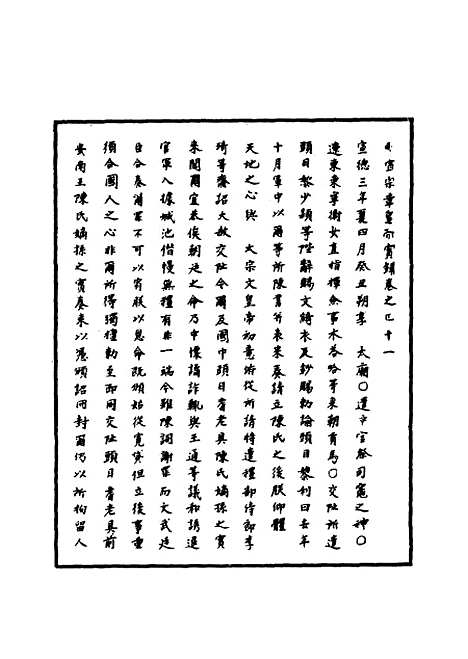 大宣宗章皇帝實錄卷之四十一
宣德三年夏四月癸丑朔享　太廟○遣中官祭司竈之神○
遼東東寧衛女直指揮僉事木荅哈等來朝貢馬○交阯所遣
頭目黎少穎等陛辭賜文綺衣及鈔賜勑諭頭目黎利曰去年
十月軍中以爾等所陳書并表來奏請立陳氏之後朕仰體
天地之心與　太宗文皇帝初意俯從所請特遣禮部侍郎李
琦等齎詔大赦交阯令爾及國中頭目耆老具陳氏嫡孫之實
來聞爾宜恭俟朝廷之命乃中懷譎詐輒與王通等議和誘退
官軍入據城池僭慢無禮有非一端今雖陳詞謝罪而文武廷
臣合奏爾罪不可以宥朕以恩命既頒始從寬貸但立後事重
須合國人之心非爾所得獨擅勑至即同交阯頭目耆老具前
安南王陳氏嫡孫之實奏來以憑頒詔冊封爾仍以所拘留人